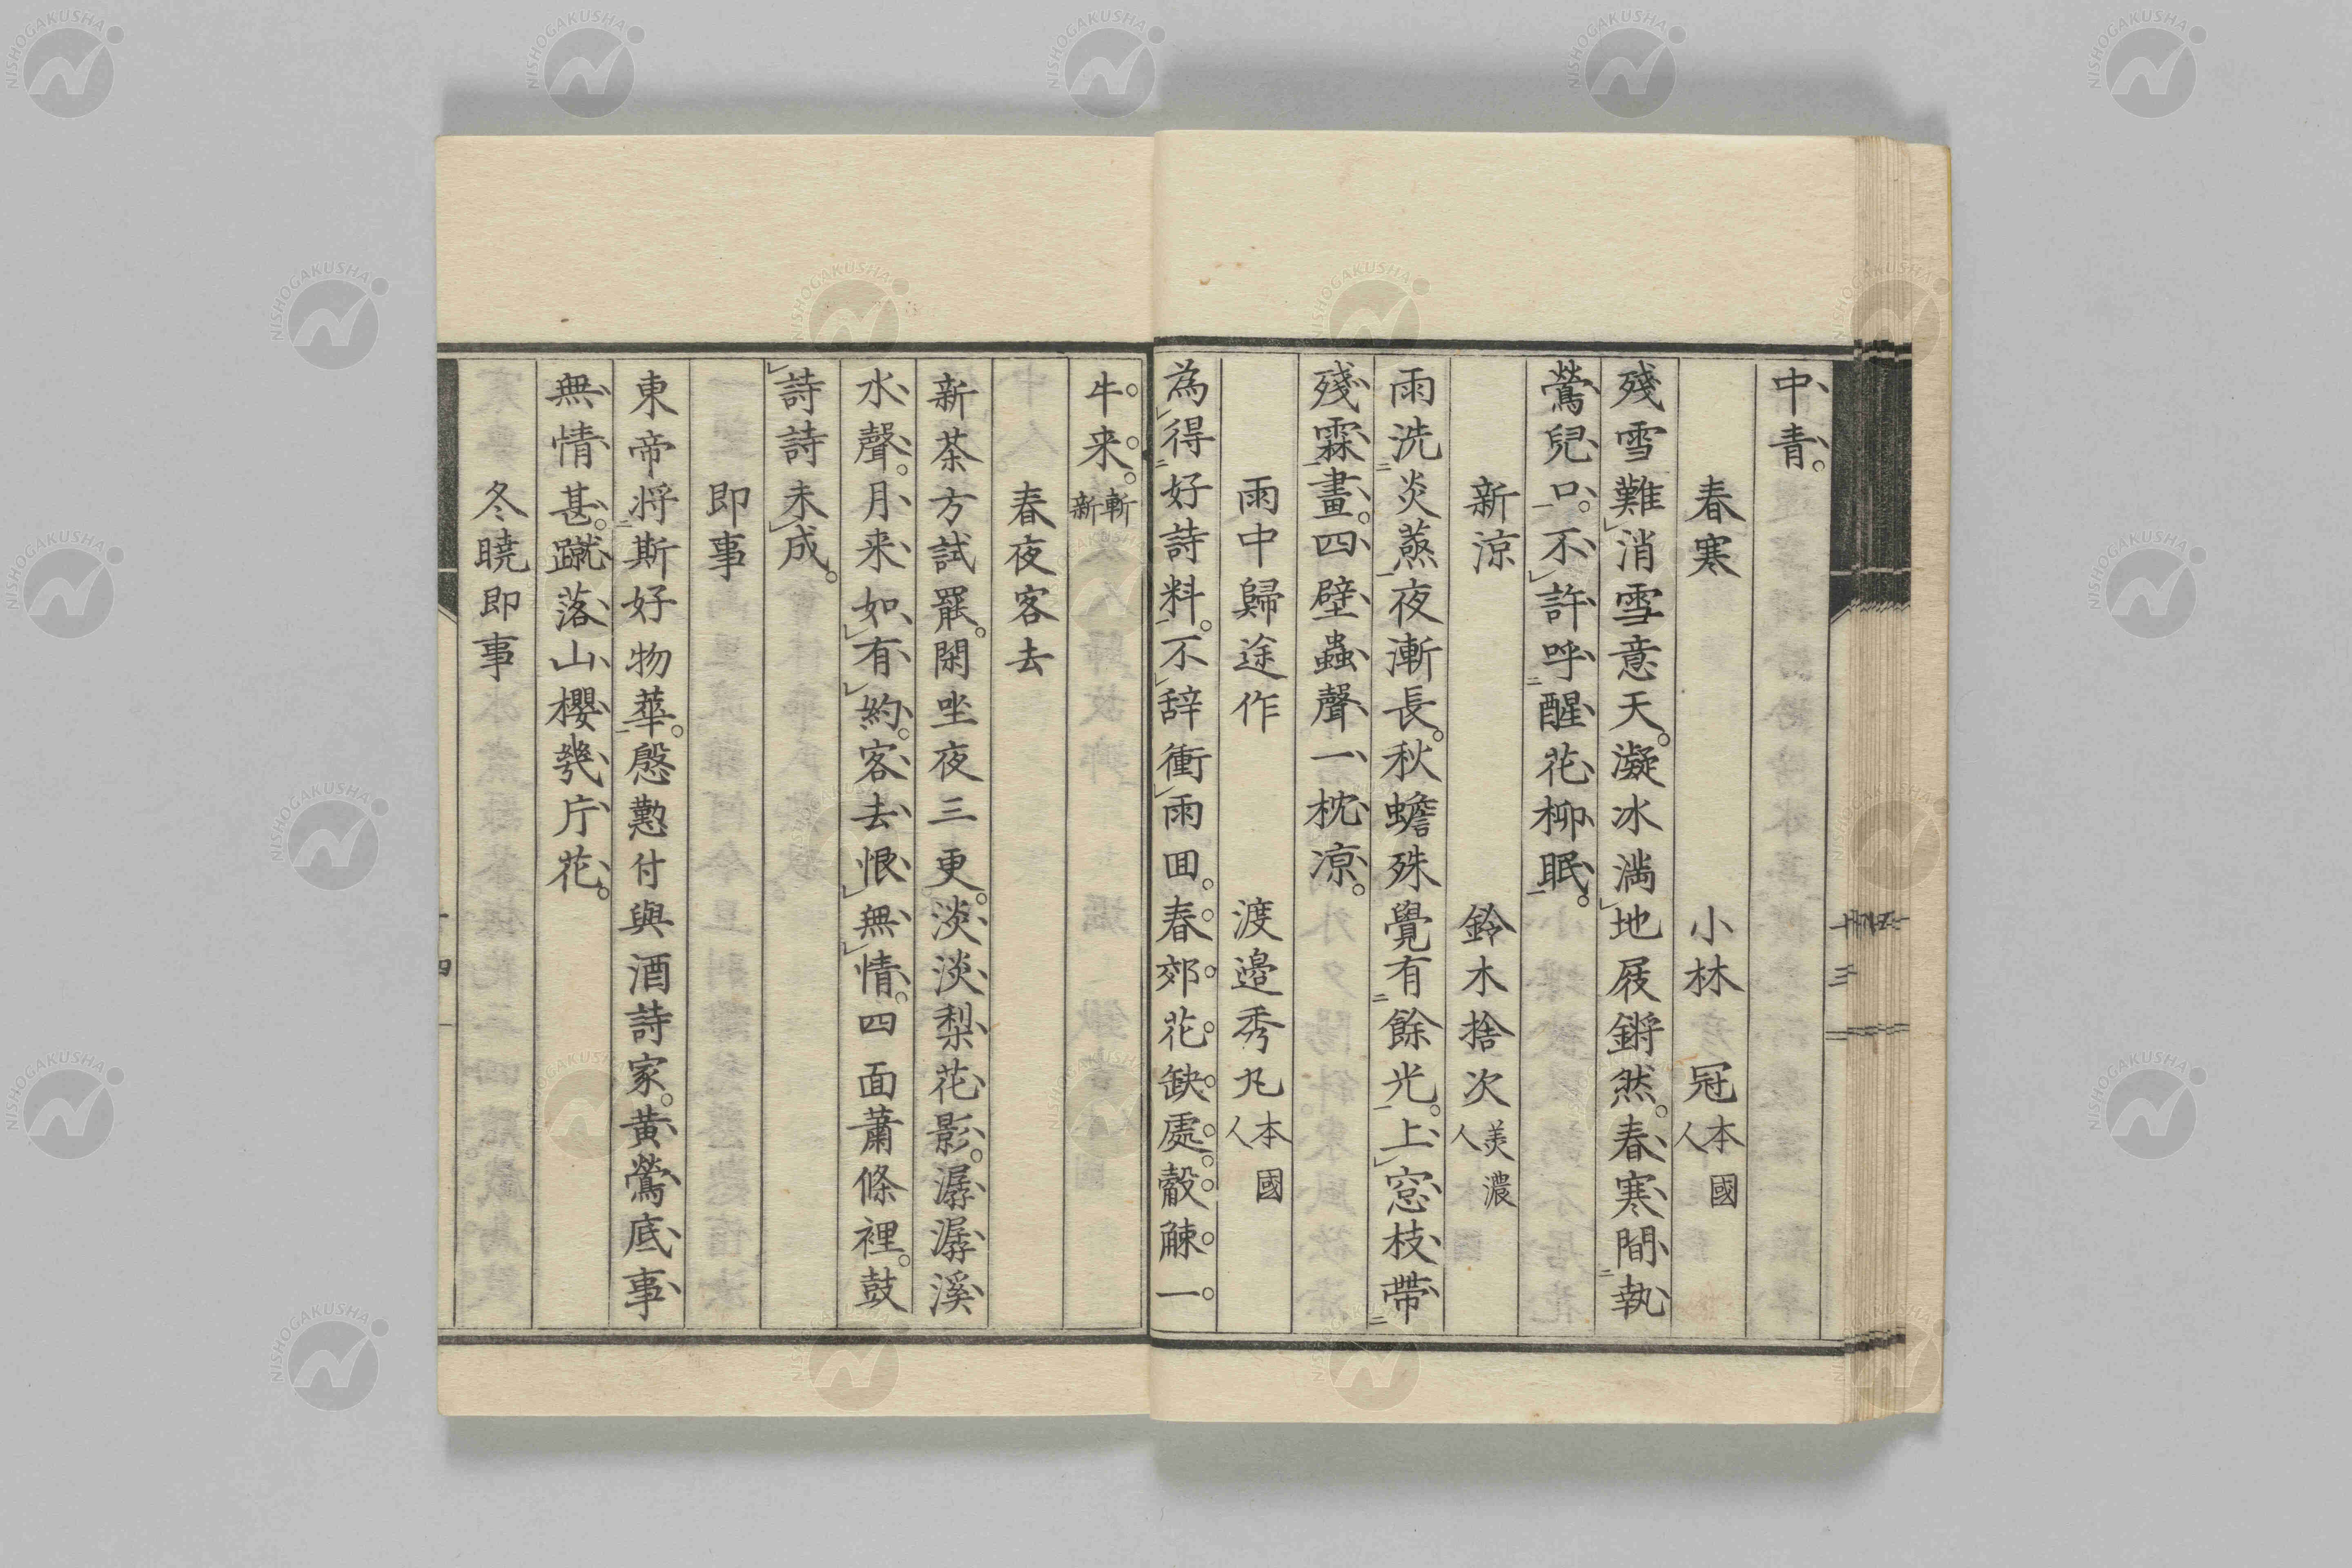 中青。
春寒　小林　冠本國人
残雪難消雪意天。凝冰満地屐鏘然。春寒間執
鶯兒口。不許呼醒花柳眠。
新涼　鈴木捨次美濃人
雨洗炎蒸夜漸長。秋蟾殊覺有餘光。上窓枝帶
殘霖畫。四壁蟲聲一枕涼。
雨中歸途作　渡邉秀凡本國人
為得好詩料。不辞衝雨回。春郊花缺處。觳觫一
牛来。斬新
春夜客去
新茶方試罷。閑坐夜三更。淡淡梨花影。潺潺溪
水聲。月来如有約。客去恨無情。四面蕭條裡。鼓
詩詩未成。
即事
東帝将斯好物華。慇懃付與酒詩家。黄鶯底事
無情甚。蹴落山櫻幾片花。
冬曉即事
十三
十四
NISHOGAKUSHA